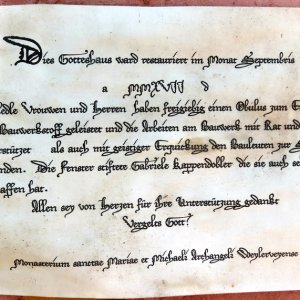 Dies Gotteshaus ward restauriert im Monat Septembris
a MMXVII d
edle Vrouwen und Herren haben freigiebig einen Obulus zum
Bauwerkstoff geleistet und die Arbeiten am Bauwerk mit Rat und
erstützer als auch mit geistiger Erquickung den Bauleuten zur
nden. Die Fenster stiftete Gabriele Kappendoller die sie auch se
affen hat.
Allen sey von Herzen für ihre Unterstützung gedankt
Vergelts Gott!
Monasterium sanctae Mariae et Michaeli Archangeli Weylerveyense